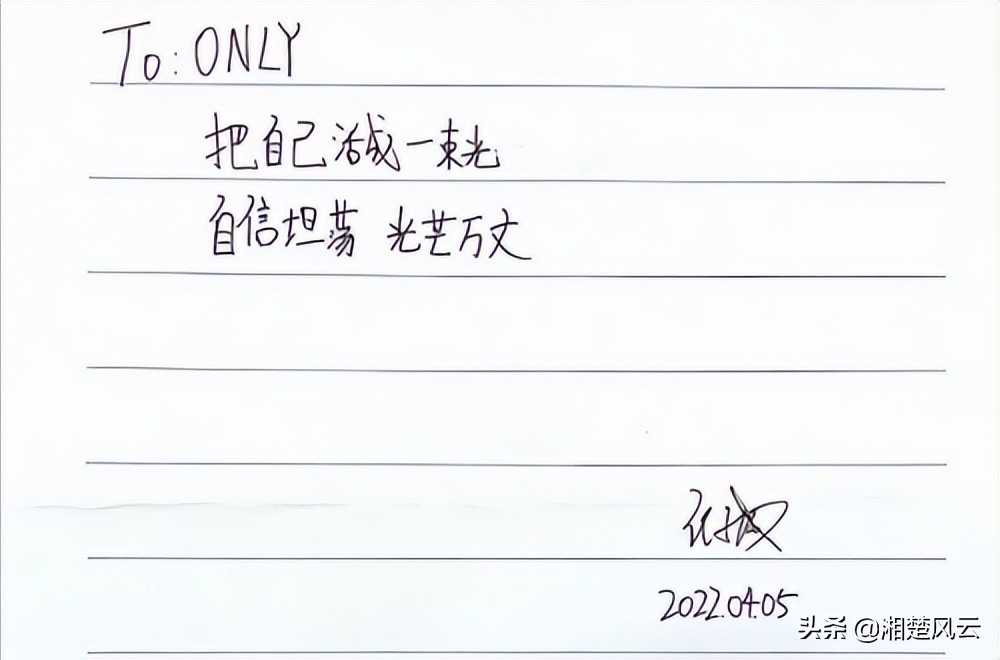 To: ONLY
把自己活成一束光
自信坦荡 光芒万丈
2022.04.05
头条 @湘楚风云